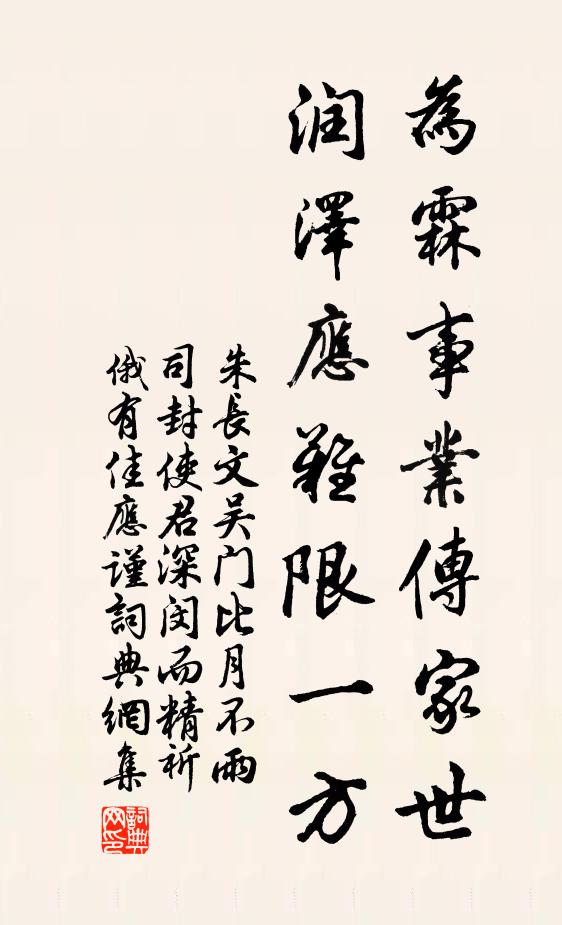 為霖事業傳家世
润澤應難限一方
朱長文吴门比月不雨
司封使君深闵而精祈
俄有佳應谨詞典網集
詞典
网印